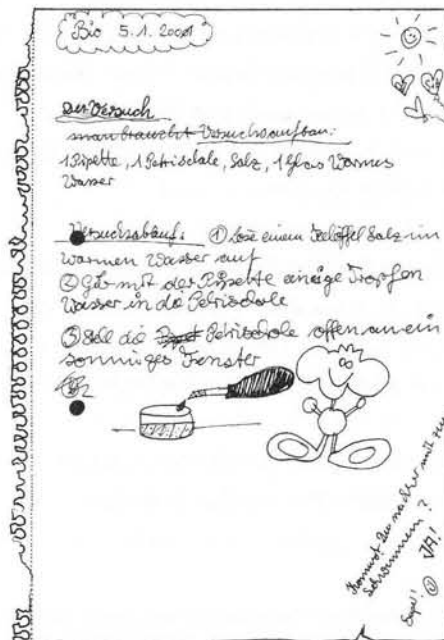 Bio 5.1.2001
Der Versuch
man braucht Versuchsaufbau:
1 Pipette, 1 Petrischale, Salz, 1 Glas Warmes
Wasser
Versuchsablauf: ① Löse einem Teelöffel Salz im
warmen Wasser auf
② Gib mit der Pipette einige Tropfen
Wasser in da Petrischale
③ Stell die Petrischale offen an ein
sonniges Fenster
Kommst du nachher mit zu
schwimmen?
JA!
Super!